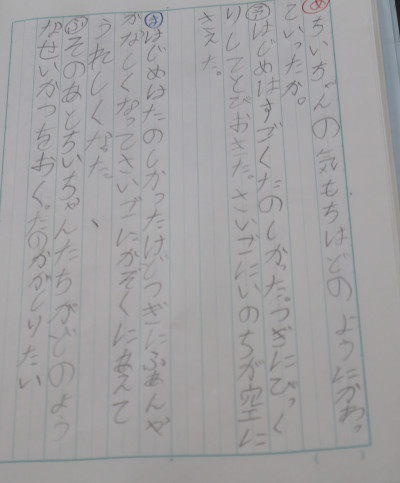 めちいちゃんの気もちはどのようにかわっ
ていったか。
はじめはすごくたのしかった。つぎにびっく
りしてとびおきた。さいごにいのちが空に
きえた。
まはじめはたのしかったけどつぎにふあんや
かなしくなってさいごにかぞくにあえて
うれしくなった
ふそのあとちいちゃんたちがどのよう
なせいかつをおくったのかがしりたい